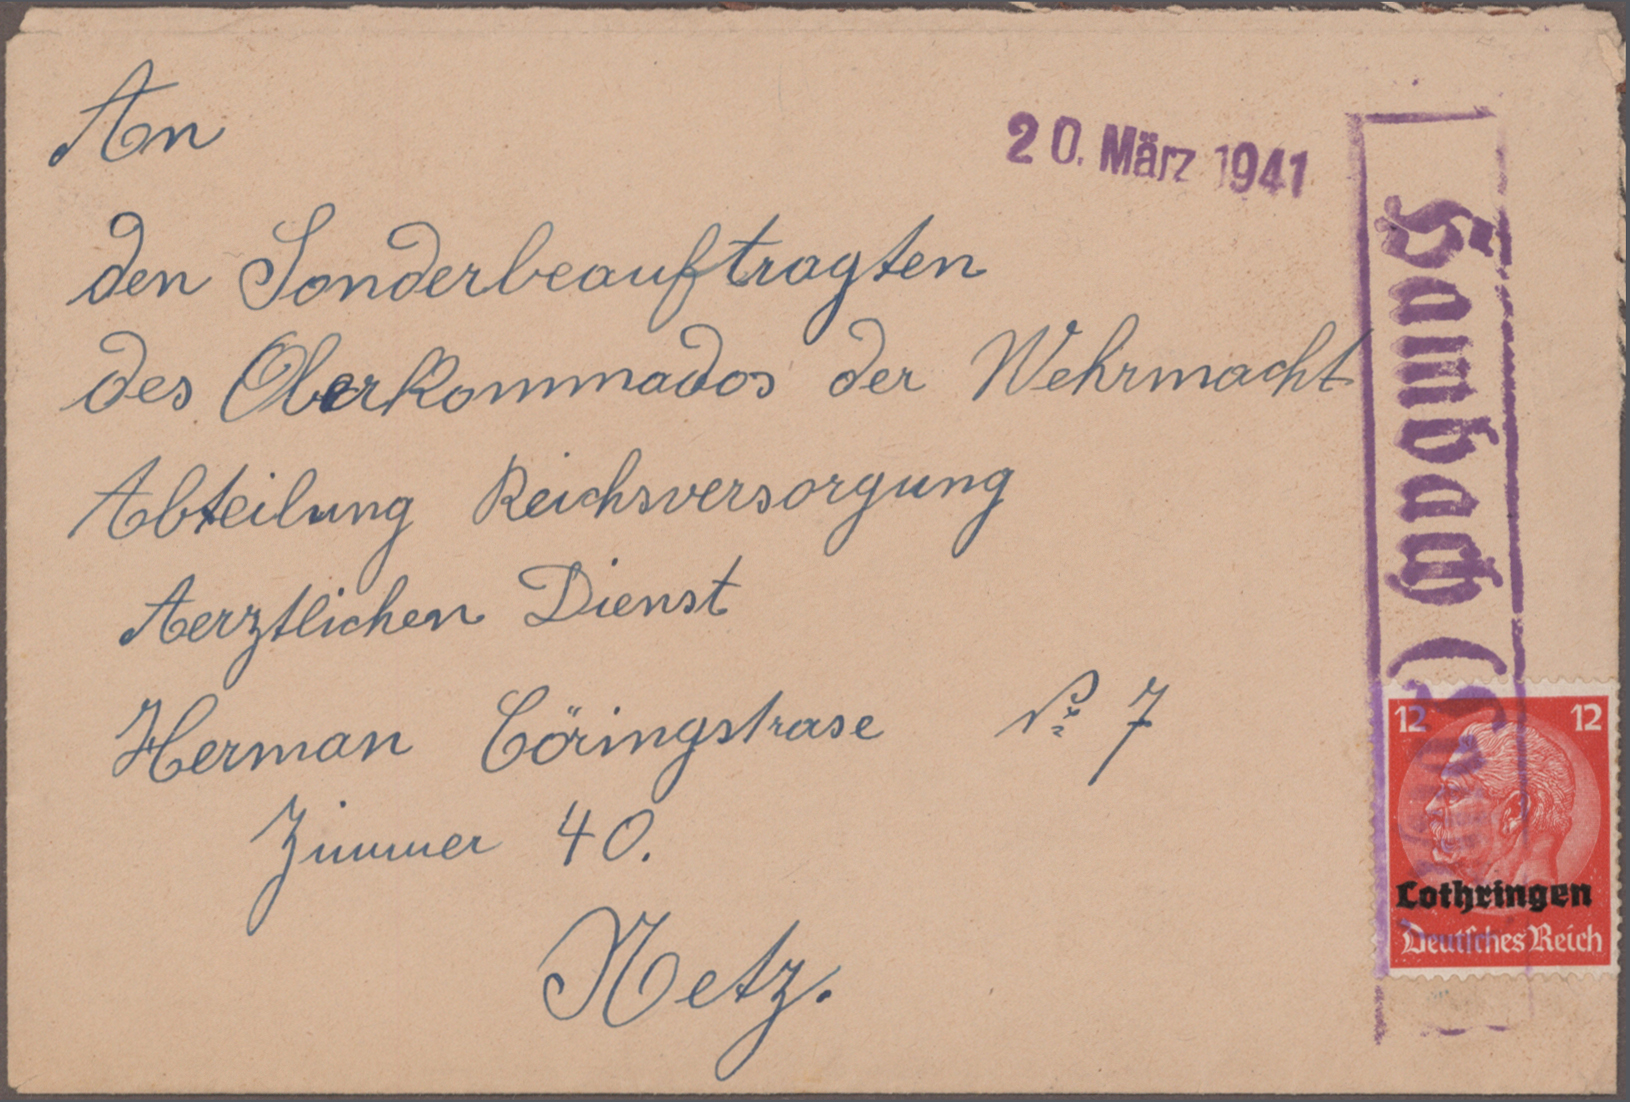 An
20. März 1941
den Sonderbeauftragten
des Oberkommados der Wehrmacht
Abteilung Reichsversorgung
Aerztlichen Dienst
Herman Göringstrase № 7
Zimmer 40.
Metz.
Hambach (Lothr
12 12
Lothringen
Deutsches Reich